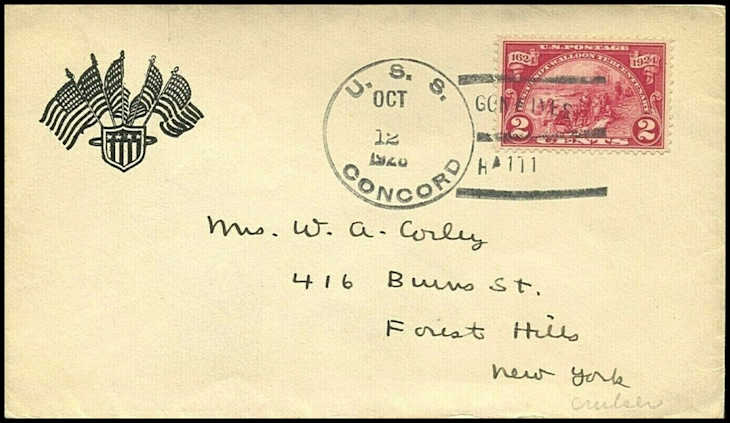 U. S. S.
OCT
12
1926
CONCORD
GONAIVES
HAITI
U.S. POSTAGE
1624 1924
HUGUENOT-WALLOON TERCENTENARY
2 CENTS 2
Mrs. W. A. Corley
416 Burns St.
Forest Hills
New York
cruiser